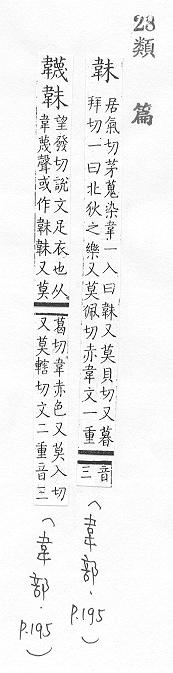 28
類篇
韎 居氣切茅蒐染韋一入曰韎又莫貝切又暮
拜切一曰北狄之樂又莫佩切赤韋文一重音三
(韋部.P.195)
韤韎 望發切說文足衣也从
韋蔑聲或作韎韎又莫
葛切韋赤色又莫入切
又莫轄切文二重音三
(韋部.P.195)